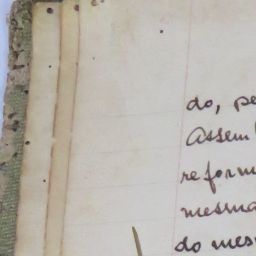 do, pe
Assem
reform
mesma
do mes